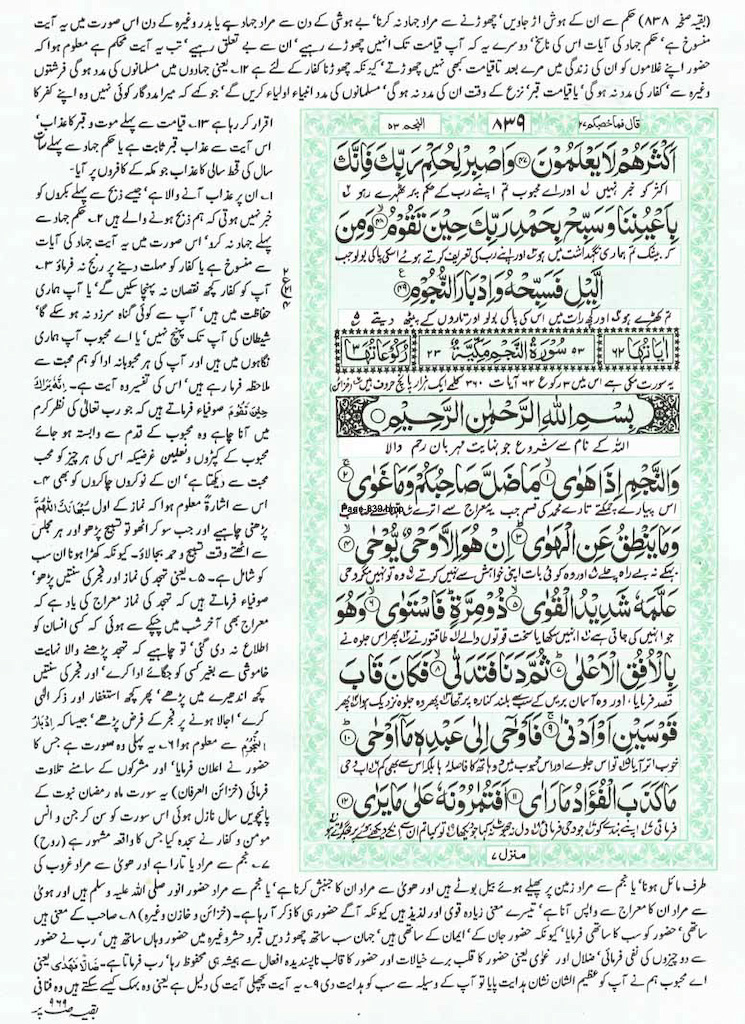 (بقیہ صفحہ ۸۳۸) حکم سے ان کے ہوش اڑ جاویں' چھوڑنے سے مراد جہاد نہ کرنا' بے ہوشی کے دن سے مراد جہاد ہے یا بدر وغیرہ کے دن اس صورت میں یہ آیت
منسوخ ہے' حکم جہاد کی آیات اس کی ناسخ' دوسرے یہ کہ آپ قیامت تک انہیں چھوڑے رہیے' ان سے بے تعلق رہیے' تب یہ آیت محکم ہے معلوم ہوا کہ
حضور اپنے غلاموں کو ان کی زندگی میں مرے بعد تاقیامت کبھی نہیں چھوڑتے' کیونکہ چھوڑنا کفار کے لئے ہے ۱۲۔ یعنی جہادوں میں مسلمانوں کی مدد ہو گی فرشتوں
وغیرہ سے' کفار کی مدد نہ ہو گی' یا قیامت قبر' نزع کے وقت ان کی مدد نہ ہو گی' مسلمانوں کی مدد انبیاء اولیاء کریں گے' جو کہے کہ میرا مددگار کوئی نہیں وہ اپنے کفر کا
قال فما خطبكم ۲۷
۸۳۹
النجم ۵۳
اَكْثَرَهُمْ لَا يَعْلَمُوْنَ ﴿۴۷﴾ وَاصْبِرْ لِحُكْمِ رَبِّكَ فَاِنَّكَ
اکثر کو خبر نہیں اور اے محبوب تم اپنے رب کے حکم پر ٹھہرے رہو
بِاَعْيُنِنَا وَسَبِّحْ بِحَمْدِ رَبِّكَ حِيْنَ تَقُوْمُ ﴿۴۸﴾ وَمِنَ
کہ بیشک تم ہماری نگہداشت میں ہو اور اپنے رب کی تعریف کرتے ہوئے اسکی پاکی بولو جب
الَّيْلِ فَسَبِّحْهُ وَاِدْبَارَ النُّجُوْمِ ﴿۴۹﴾
تم کھڑے ہو اور کچھ رات میں اس کی پاکی بولو اور تاروں کے پیٹھ دیتے
اٰيَاتُهَا ۶۲ ۵۳ سُوْرَةُ النَّجْمِ مَكِّيَّةٌ ۲۳ رُكُوْعَاتُهَا ۳
یہ سورت مکی ہے اس میں ۳ رکوع ۶۲ آیات ۳۶۰ کلمے ایک ہزار چار سو پانچ حروف ہیں (خزائن)
بِسْمِ اللهِ الرَّحْمٰنِ الرَّحِيْمِ
اللہ کے نام سے شروع جو نہایت مہربان رحم والا
وَالنَّجْمِ اِذَا هَوٰى ﴿۱﴾ مَا ضَلَّ صَاحِبُكُمْ وَمَا غَوٰى ﴿۲﴾
اس پیارے چمکتے تارے محمد کی قسم جب یہ معراج سے اترے
Page-839.bmp
وَمَا يَنْطِقُ عَنِ الْهَوٰى ﴿۳﴾ اِنْ هُوَ اِلَّا وَحْيٌ يُّوْحٰى ﴿۴﴾
بہکے نہ بے راہ چلے اور وہ کوئی بات اپنی خواہش سے نہیں کرتے وہ تو نہیں مگر وحی
عَلَّمَهٗ شَدِيْدُ الْقُوٰى ﴿۵﴾ ذُوْ مِرَّةٍ فَاسْتَوٰى ﴿۶﴾ وَهُوَ
جو انہیں کی جاتی ہے انہیں سکھایا سخت قوتوں والے طاقتور نے پھر اس جلوہ نے
بِالْاُفُقِ الْاَعْلٰى ﴿۷﴾ ثُمَّ دَنَا فَتَدَلّٰى ﴿۸﴾ فَكَانَ قَابَ
قصد فرمایا اور وہ آسمان بریں کے سب سے بلند کنارہ پر تھا پھر وہ جلوہ نزدیک ہوا پھر
قَوْسَيْنِ اَوْ اَدْنٰى ﴿۹﴾ فَاَوْحٰى اِلٰى عَبْدِهٖ مَا اَوْحٰى ﴿۱۰﴾
خوب اتر آیا تو اس جلوے اور اس محبوب میں دو ہاتھ کا فاصلہ رہا بلکہ اس سے بھی کم اب وحی
مَا كَذَبَ الْفُؤَادُ مَا رَاٰى ﴿۱۱﴾ اَفَتُمٰرُوْنَهٗ عَلٰى مَا يَرٰى ﴿۱۲﴾
فرمائی اپنے بندے کو جو وحی فرمائی دل نے جھوٹ نہ کہا جو دیکھا تو کیا تم ان سے ان کے دیکھے ہوئے پر جھگڑتے ہو
منزل ۷
اقرار کر رہا ہے ۱۳۔ قیامت سے پہلے موت و قبر کا عذاب'
اس آیت سے عذاب قبر ثابت ہے یا حکم جہاد سے پہلے سات
سال کی قحط سالی کا عذاب جو مکہ کے کافروں پر آیا۔
۱۔ ان پر عذاب آنے والا ہے' جیسے ذبح سے پہلے بکروں کو
خبر نہیں ہوتی کہ ہم ذبح ہونے والے ہیں ۲۔ حکم جہاد سے
پہلے جہاد نہ کرو' اس صورت میں یہ آیت جہاد کی آیات
سے منسوخ ہے یا کفار کو مہلت دینے پر رنج نہ فرماؤ ۳۔
آپ کو کفار کچھ نقصان نہ پہنچا سکیں گے' یا آپ ہماری
حفاظت میں ہیں' آپ سے کوئی گناہ سرزد نہ ہو سکے گا'
شیطان کی آپ تک پہنچ نہیں' یا اے محبوب آپ ہماری
نگاہوں میں ہیں اور آپ کی ہر محبوبانہ ادا کو ہم محبت سے
ملاحظہ فرما رہے ہیں' اس کی تفسیر وہ آیت ہے۔ اِنَّهٗ يَرٰىكَ
حِيْنَ تَقُوْمُ صوفیاء فرماتے ہیں کہ جو رب تعالٰی کی نظر کرم
میں آنا چاہے وہ محبوب کے قدم سے وابستہ ہو جائے
محبوب کے کپڑوں و نعلین غرضیکہ اس کی ہر چیز کو محب
محبت سے دیکھتا ہے' ان کے نوکروں چاکروں کو بھی ۴۔
اس سے اشارۃً معلوم ہوا کہ نماز کے اول سُبْحَانَكَ اللّٰهُمَّ
پڑھنی چاہیے اور جب سو کر اٹھو تو تسبیح پڑھو اور ہر مجلس
سے اٹھتے وقت تسبیح و حمد بجا لاؤ۔ کیونکہ کھڑا ہونا ان سب
کو شامل ہے۔ ۵۔ یعنی تہجد کی نماز اور فجر کی سنتیں پڑھو'
صوفیاء فرماتے ہیں کہ تہجد کی نماز معراج کی یاد ہے کہ
معراج بھی آخر شب میں چپکے سے ہوئی' کہ کسی انسان کو
اطلاع نہ دی گئی' تو چاہیے کہ تہجد پڑھنے والا نہایت
خاموشی سے بغیر کسی کو جگائے ادا کرے' اور فجر کی سنتیں
کچھ اندھیرے میں پڑھے' پھر کچھ استغفار اور ذکر الٰہی
کرے' اجالا ہونے پر فجر کے فرض پڑھے' جیسا کہ اِدْبَارَ
النُّجُوْمِ سے معلوم ہوا ۶۔ یہ پہلی وہ سورت ہے جس کا
حضور نے اعلان فرمایا' اور مشرکوں کے سامنے تلاوت
فرمائی (خزائن العرفان) یہ سورت ماہ رمضان نبوت کے
پانچویں سال نازل ہوئی اس سورت کو سن کر جن و انس
مومن و کفار نے سجدہ کیا جس کا واقعہ مشہور ہے (روح)
۷۔ نجم سے مراد یا تارا ہے اور ھویٰ سے مراد غروب کی
طرف مائل ہونا' یا نجم سے مراد زمین پر پھیلے ہوئے بیل بوٹے ہیں اور ھویٰ سے مراد ان کا جنبش کرنا ہے' یا نجم سے مراد حضور انور صلی اللہ علیہ وسلم ہیں اور ہویٰ
سے مراد ان کا معراج سے واپس آنا ہے' تیسرے معنی زیادہ قوی اور لذیذ ہیں کیونکہ آگے حضور ہی کا ذکر آ رہا ہے۔ (خزائن و خازن وغیرہ) ۸۔ صاحب کے معنی ہیں
ساتھی' حضور کو سب کا ساتھی فرمایا' کیونکہ حضور جان کے' ایمان کے ساتھی ہیں' جہاں سب ساتھ چھوڑ دیں قبر و حشر وغیرہ میں حضور وہاں ساتھ ہیں' رب نے حضور
سے دو چیزوں کی نفی فرمائی' ضلال اور غویٰ یعنی حضور کا قلب برے خیالات اور حضور کا قالب ناپسندیدہ افعال سے ہمیشہ ہی محفوظ رہا' رب فرماتا ہے۔ ضَالًّا فَهَدٰى یعنی
اے محبوب ہم نے آپ کو عظیم الشان نشان ہدایت پایا تو آپ کے وسیلہ سے سب کو ہدایت دی ۹۔ یہ آیت پچھلی آیت کی دلیل ہے یعنی وہ بہک کیسے سکتے ہیں وہ فنا فی
بقیہ صفحہ ۹۶۹ پر